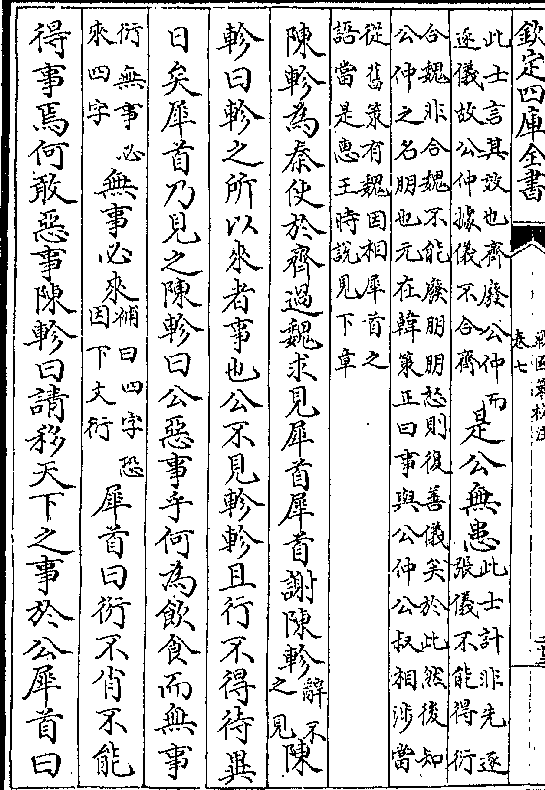 欽定四庫全書
卷七
此士言其效也齊廢公仲
逐儀故公仲據儀不合齊
而是公無患
此士計非先逐
張儀不能得衍
合魏非合魏不能廢朋朋怒則復善儀矣於此然後知
公仲之名朋也元在韓策正曰事與公仲公叔相涉當
從舊策有魏因相犀首之
語當是惠王時說見下章
陳軫為秦使於齊過魏求見犀首犀首謝陳軫
辭不
之見
陳
軫曰軫之所以來者事也公不見軫軫且行不得待異
日矣犀首乃見之陳軫曰公惡事乎何為飲食而無事
衍無事必
來四字
無事必來
補曰四字恐
因下文衍
犀首曰衍不肖不能
得事焉何敢惡事陳軫曰請移天下之事於公犀首曰